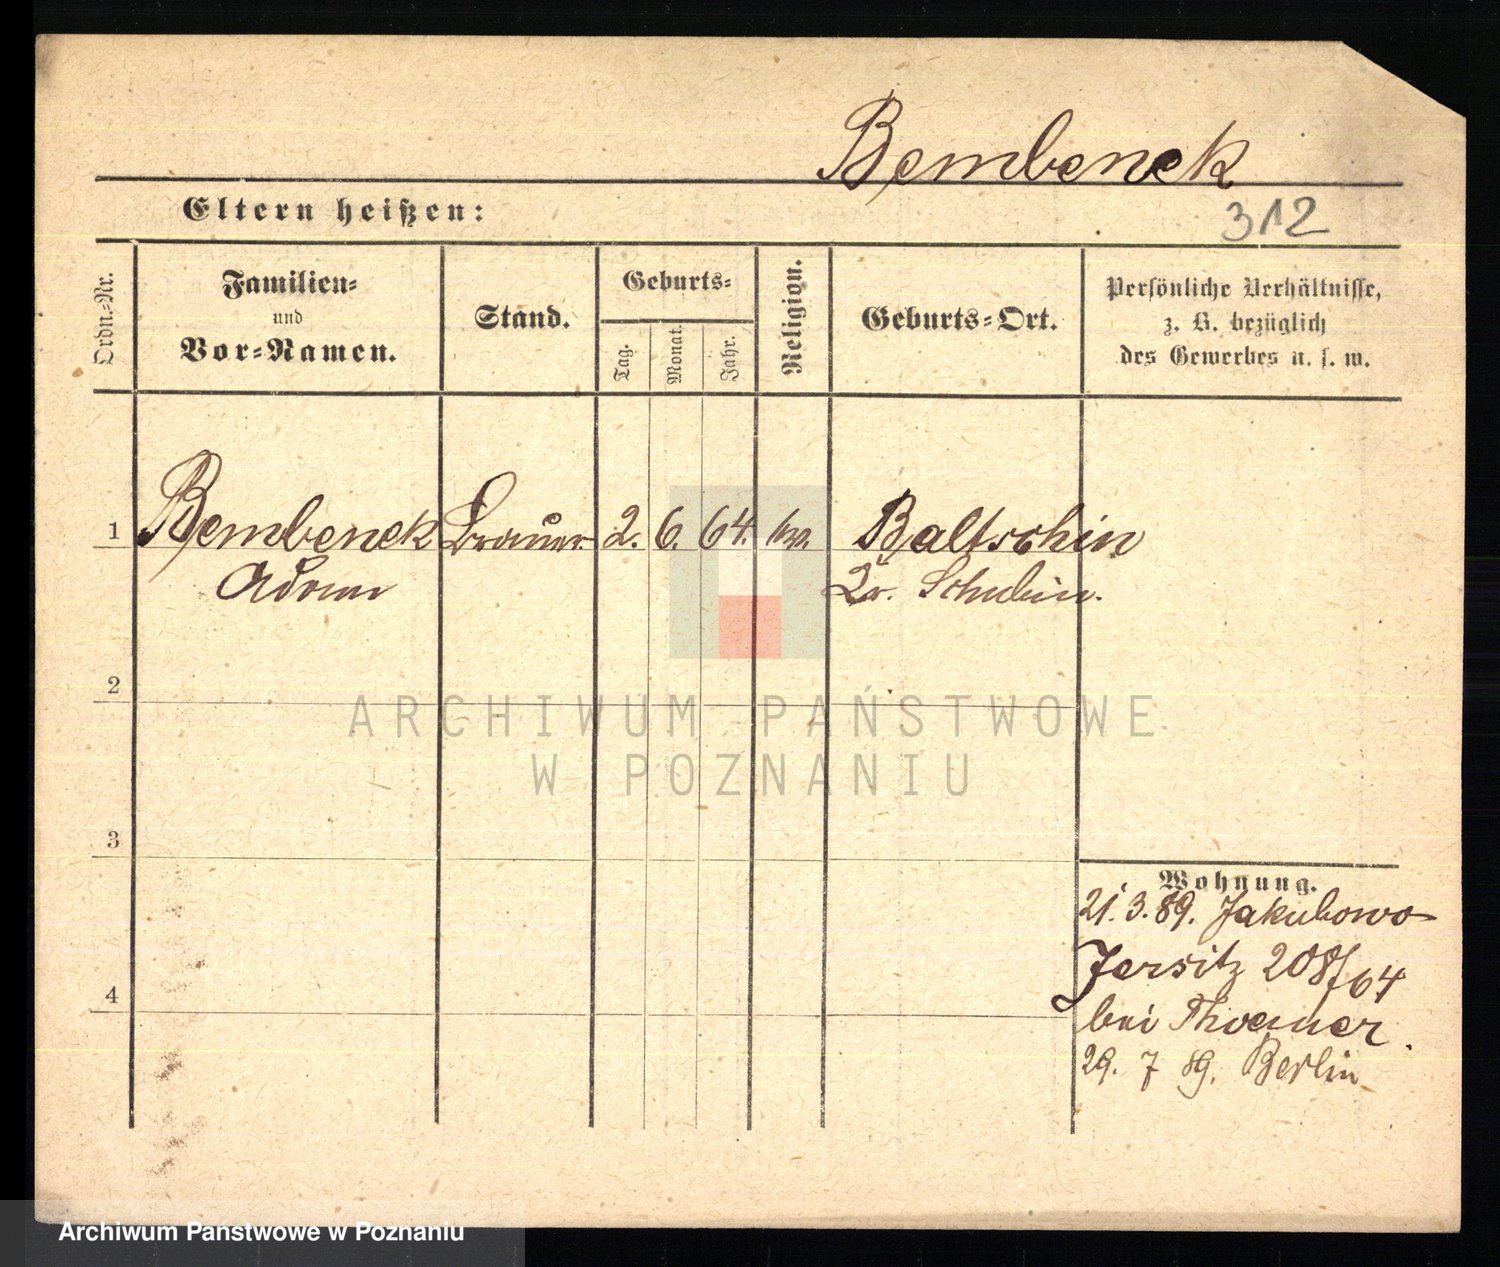 Bembenek
Eltern heißen:
312
Ordn.-Nr.
Familien-
und
Vor-Namen.
Stand.
Geburts-
Tag.
Monat.
Jahr.
Religion.
Geburts-Ort.
Persönliche Verhältnisse,
z. B. bezüglich
des Gewerbes u. s. w.
1 Bembenek Brauer 2. 6. 64. Baltschin
Adam Schubin.
2
3
4
Wohnung.
21. 3. 89. Jakubowo
Jersitz 208/64
bei
29. 7 89. Berlin
ARCHIWUM PAŃSTWOWE
W POZNANIU
Archiwum Państwowe w Poznaniu